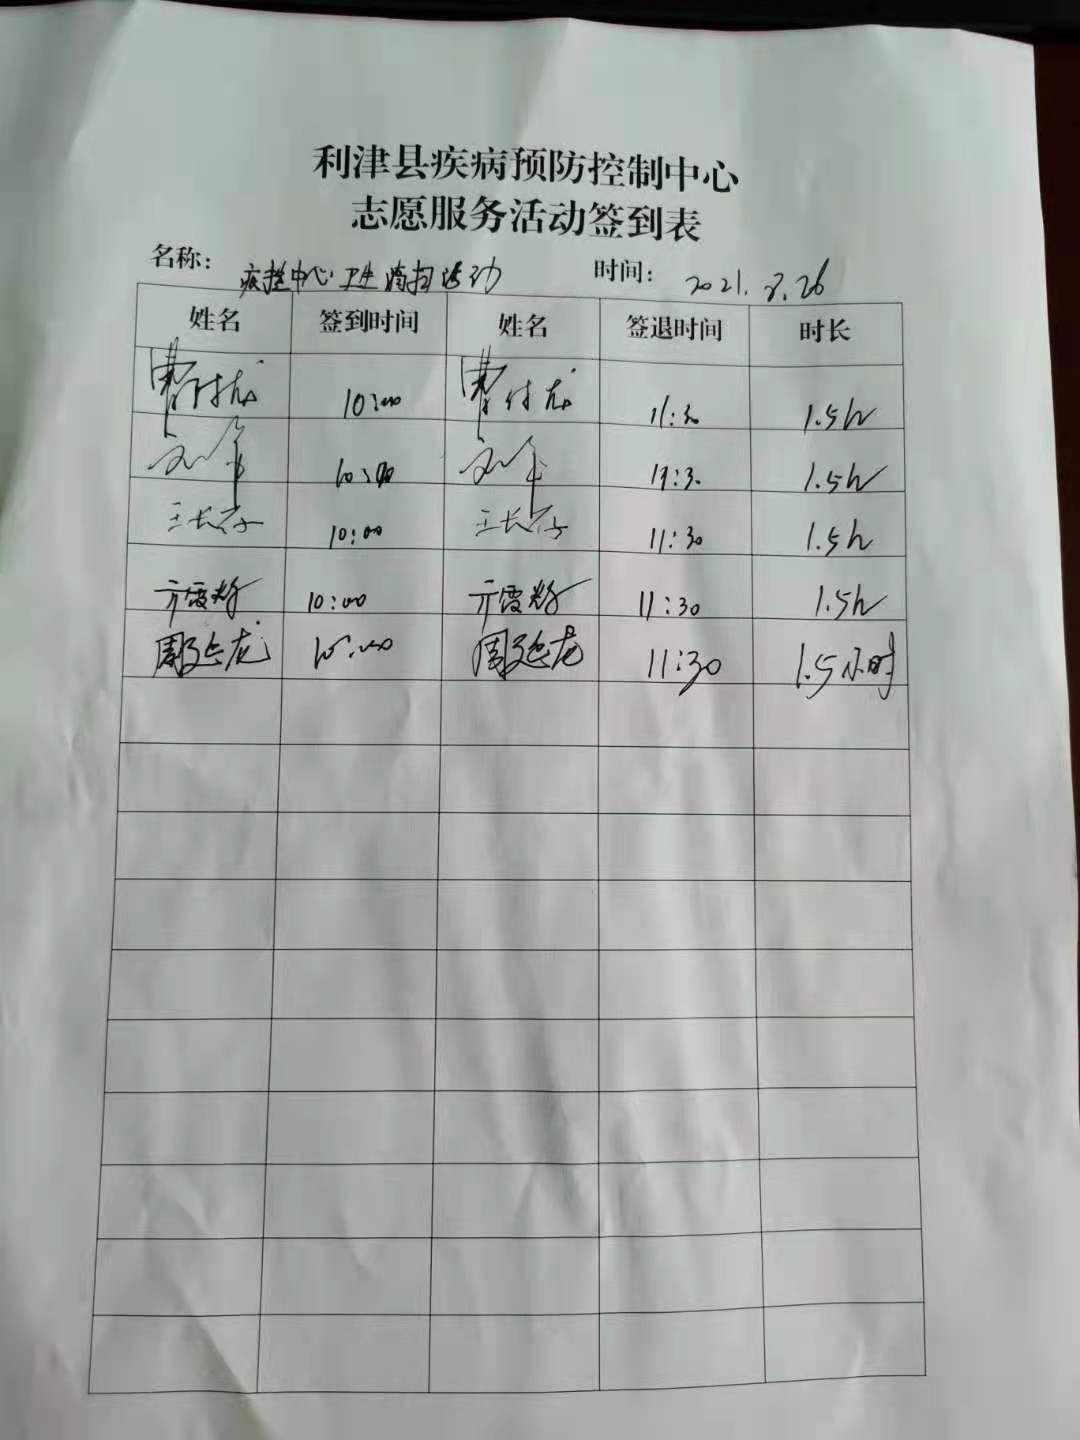 利津县疾病预防控制中心
志愿服务活动签到表
名称： 疾控中心卫生清扫活动 时间： 2021.8.26
姓名 签到时间 姓名 签退时间 时长
曹付龙 10:00 曹付龙 11:30 1.5h
刘军 10:00 刘军 11:30 1.5h
王长存 10:00 王长存 11:30 1.5h
10:00 11:30 1.5h
周延龙 10:00 周延龙 11:30 1.5小时